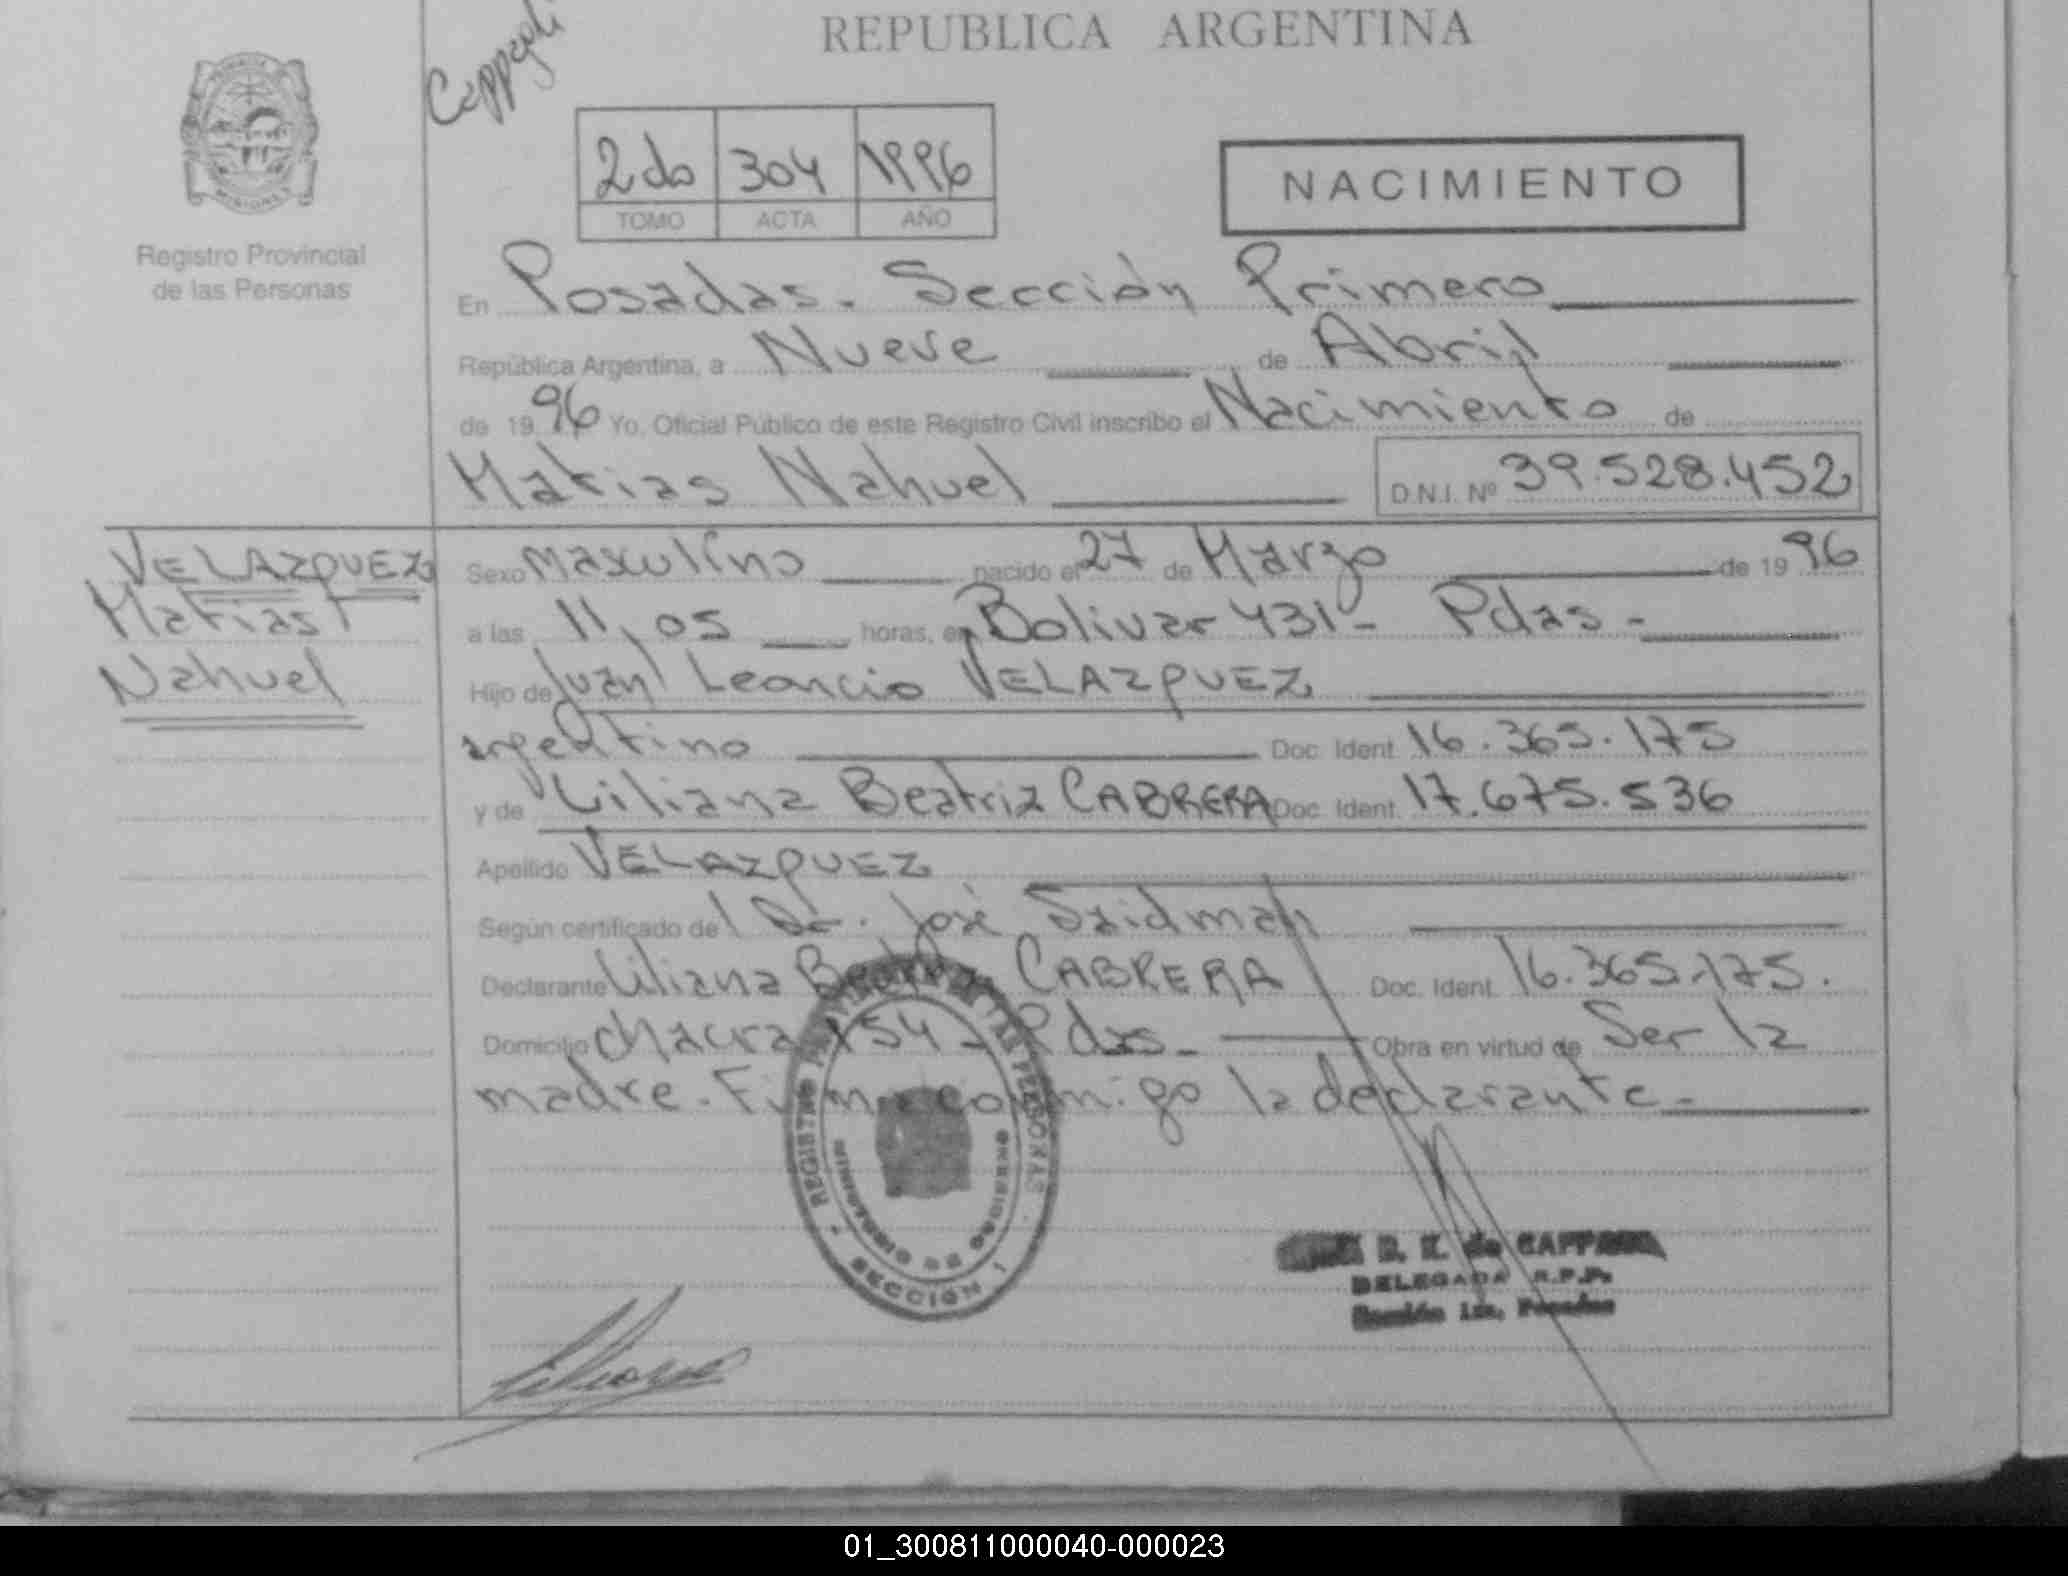 REPUBLICA ARGENTINA
PROVINCIA
MISIONES
Registro Provincial
de las Personas
2do 304 1996
TOMO ACTA AÑO
NACIMIENTO
En Posadas. Sección Primera
República Argentina, a Nueve de Abril
de 1996 Yo, Oficial Público de este Registro Civil inscribo el Nacimiento de
Matias Nahuel D.N.I. Nº 39.528.452
VELAZQUEZ
Matias
Nahuel
Sexo masculino nacido el 27 de Marzo de 1996
a las 11,05 horas, en Bolivar 431- Pdas-
Hijo de Juan Leoncio VELAZQUEZ
argentino Doc. Ident. 16.365.175
y de Liliana Beatriz CABRERA Doc. Ident. 17.675.536
Apellido VELAZQUEZ
Según certificado del Dr. José Szidman
Declarante Liliana Beatriz CABRERA Doc. Ident. 16.365.175.
Domicilio chacra 154 - Pdas- Obra en virtud de Ser la
madre. Firma conmigo la declarante.-
REGISTRO DE LAS PERSONAS
MINISTERIO DE GOBIERNO
SECCION 1
DELEGADA R.P.P.
Sección 1ra. Posadas
Liliana
01_300811000040-000023